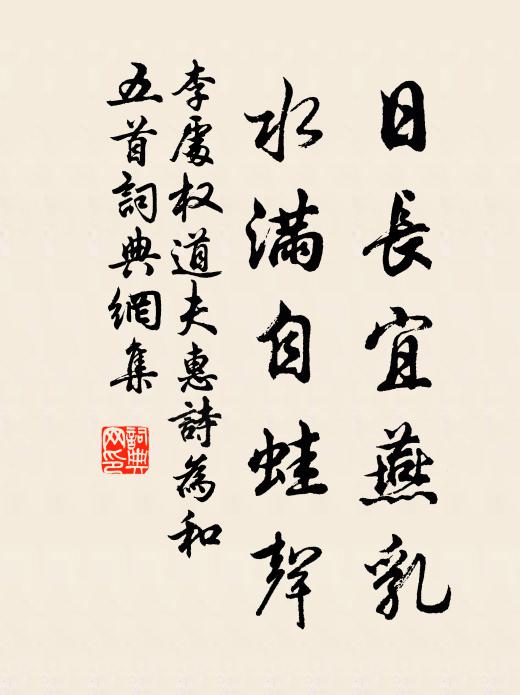 日長宜燕乳
水滿自蛙聲
李處权道夫惠詩為和
五首詞典網集
詞典
网印